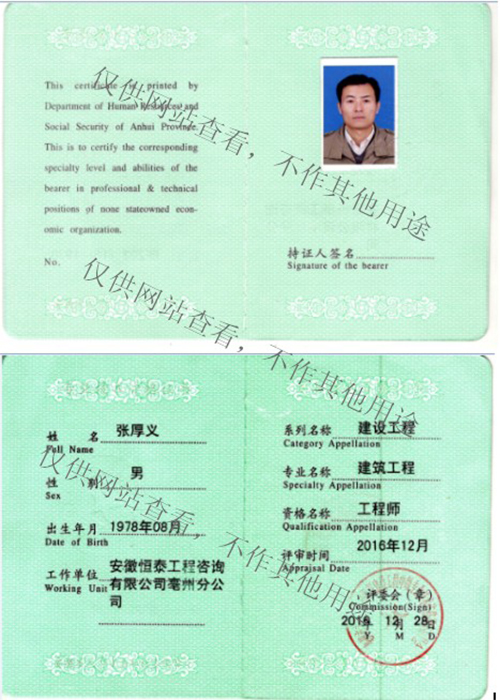 This certificate is printed by
Department of Human Resources and
Social Security of Anhui Province.
This is to certify the corresponding
specialty level and abilities of the
bearer in professional & technical
positions of none stateowned econ-
omic organization.
No.
持证人签名
Signature of the bearer
仅供网站查看，不作其他用途
仅供网站查看，不作其他用途
仅供网站查看，不作其他用途
姓 名 张厚义
Full Name
性 别 男
Sex
出生年月 1978年08月
Date of Birth
工作单位 安徽恒泰工程咨询
Working Unit 有限公司亳州分公
司
系列名称 建设工程
Category Appellation
专业名称 建筑工程
Specialty Appellation
资格名称 工程师
Qualification Appellation
评审时间 2016年12月
Appraisal Date
评委会（章）
Commission(Sign)
2016年 12月 28日
Y M D